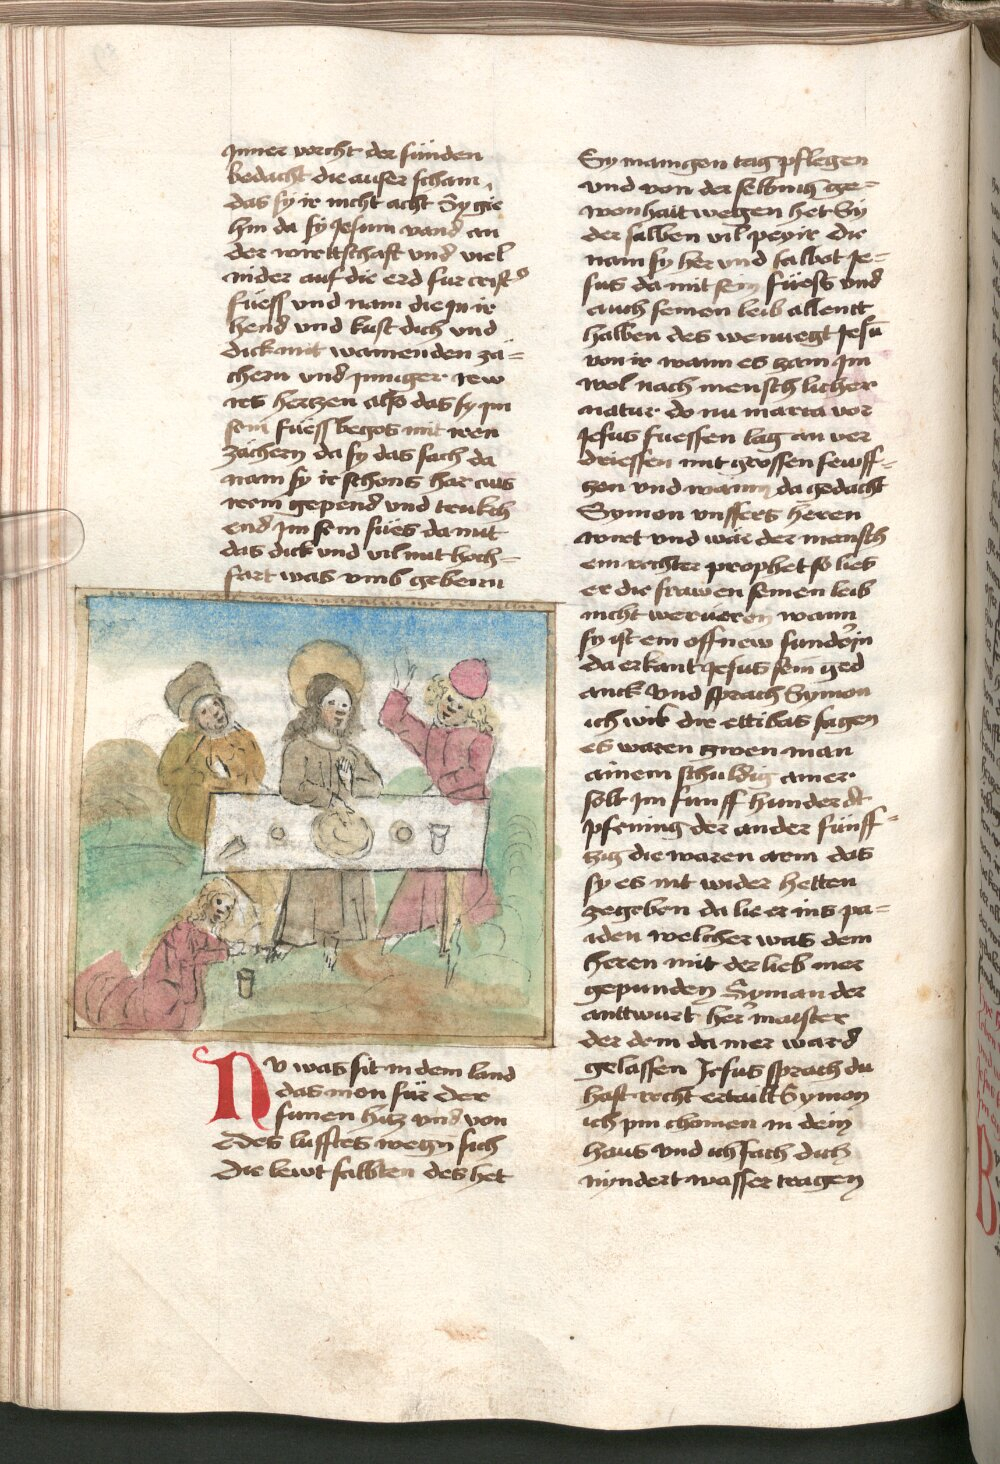 Inner vorcht der sünden
bedacht die auser scham
das sy ir nicht acht Sy gie
hin da sy Jesum vand an
der wirttschaft vnd viel
nider auf die erd fur crist9
füess vnd nam die in ir
hend vnd kust dich vnd
dick mit wainenden zä=
chern vnd Inniger rew
irs hertzen also das sy Im
sein füess begos mit iren
zächern da sy das sach da
nam sy ir schons har aus
irem gepend vnd trukch
end Im sein füess da mit
das dick vnd vil mit hoch=
fart was vmb gebenn
Nu was sit in dem land
das mon für der
sunen hitz vnd von
des lufftes wegn sich
die lewt salbten des het
Sy manigen tag pflegen
vnd von der selbnich ge=
wonhait wegen het Sy
der salben vil peyir die
nam sy her vnd salbet Je=
sus da mit sein füess vnd
auch seinen leib allentt
halben des wenuegt Jesu
von ir wann es zam Im
wol nach menschlicher
natur do nu maria vor
Jesus fuessen lag an ver
driessen mit grossen sewff=
zen vnd wainn da gedacht
Symon vnssers heren
wirt vnd wär der mensch
ein rechter prophet so lies
er die frawen seinen leib
nicht werüeren wann
sy ist ein offnew sunderin
da erkant Jesus sein ged
anck vnd sprach Symon
ich wil die ettibas sagen
es waren zwen man
ainem schuldig ainer
solt Im funff hunder dt
pfening der ander fünff=
zig die waren arm das
sy es nit wider hetten
gegeben da lie er ins pa=
iden welcher was dem
heren mit der lieb mer
gepunden Syman der
anttwurt her maister
der dem da mer ward
gelassen Jesus sprach du
hast recht ertailt Symon
ich pin chomen in dein
haus vnd ich sach dich
nyndert wasser tragen